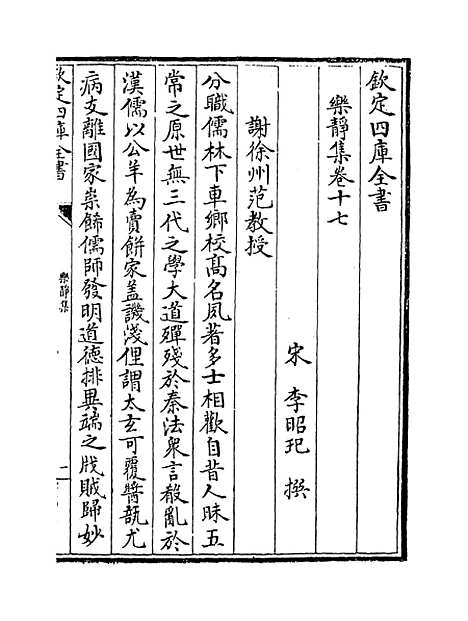 欽定四庫全書
樂靜集卷十七
宋 李昭玘 撰
謝徐州范教授
分職儒林下車鄉校髙名夙著多士相歡自昔人昧五
常之原世無三代之學大道殫殘於秦法衆言殽亂於
漢儒以公羊為賣餅家蓋譏淺俚謂太玄可覆醬瓿尤
病支離國家崇飾儒師發明道德排異端之戕賊歸妙
欽定四庫全書
樂靜集
一